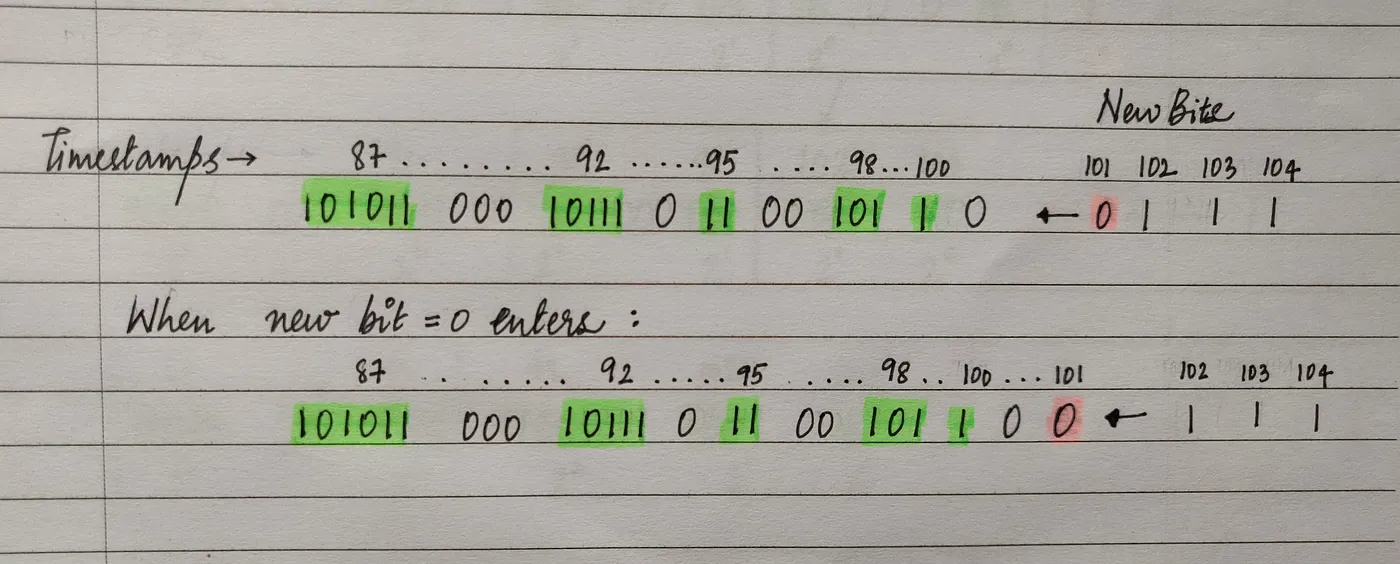 New Bits
Timestamps → 87 ......... 92 ......95 ..... 98...100 101 102 103 104
101011 000 10111 0 11 00 101 1 0 ← 0 1 1 1
When new bit = 0 enters :
87 . ...... 92 ..... 95 ..... 98 .. 100 ... 101 102 103 104
101011 000 10111 0 11 00 101 1 0 0 ← 1 1 1